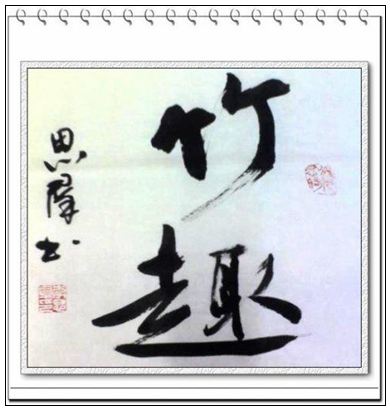 竹趣
思群书